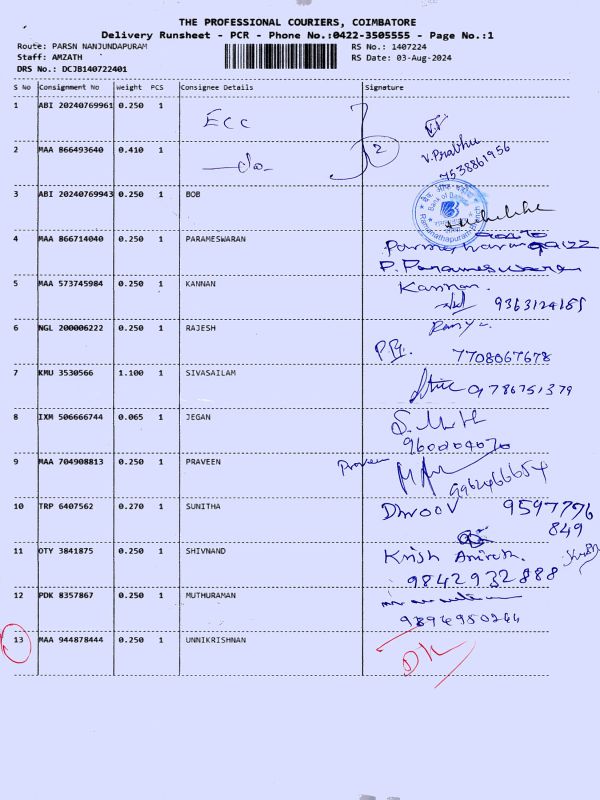 THE PROFESSIONAL COURIERS, COIMBATORE
Delivery Runsheet - PCR - Phone No.:0422-3505555 - Page No.:1
Route: PARSN NANJUNDAPURAM RS No.: 1407224
Staff: AMZATH RS Date: 03-Aug-2024
DRS No.: DCJB140722401
S No Consignment No Weight PCS Consignee Details Signature
1 ABI 20240769961 0.250 1 ECC
2 MAA 866493640 0.410 1 —do— 2 V. Prabhu
7538861956
3 ABI 20240769943 0.250 1 BOB
Bank of Baroda
4 MAA 866714040 0.250 1 PARAMESWARAN
P. Parameswaran
5 MAA 573745984 0.250 1 KANNAN Kannan.
9363124165
6 NGL 200006222 0.250 1 RAJESH
7708067678
7 KMU 3530566 1.100 1 SIVASAILAM
9786751379
8 IXM 506666744 0.065 1 JEGAN
9600204070
9 MAA 704908813 0.250 1 PRAVEEN Praveen
9962466654
10 TRP 6407562 0.270 1 SUNITHA Dhroov 9597776
849
11 OTY 3841875 0.250 1 SHIVNAND Krish Anirudh.
9842932888
12 PDK 8357867 0.250 1 MUTHURAMAN
9894950244
13 MAA 944878444 0.250 1 UNNIKRISHNAN